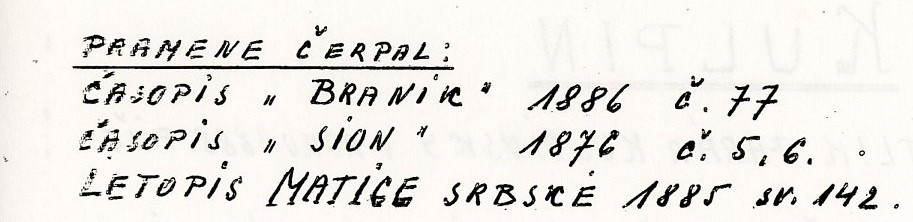 PRAMENE ČERPAL:
ČASOPIS „ BRANIK " 1886 č. 77
ČASOPIS „ SION " 1876 č. 5, 6.
LETOPIS MATICE SRBSKÉ 1885 sv. 142.